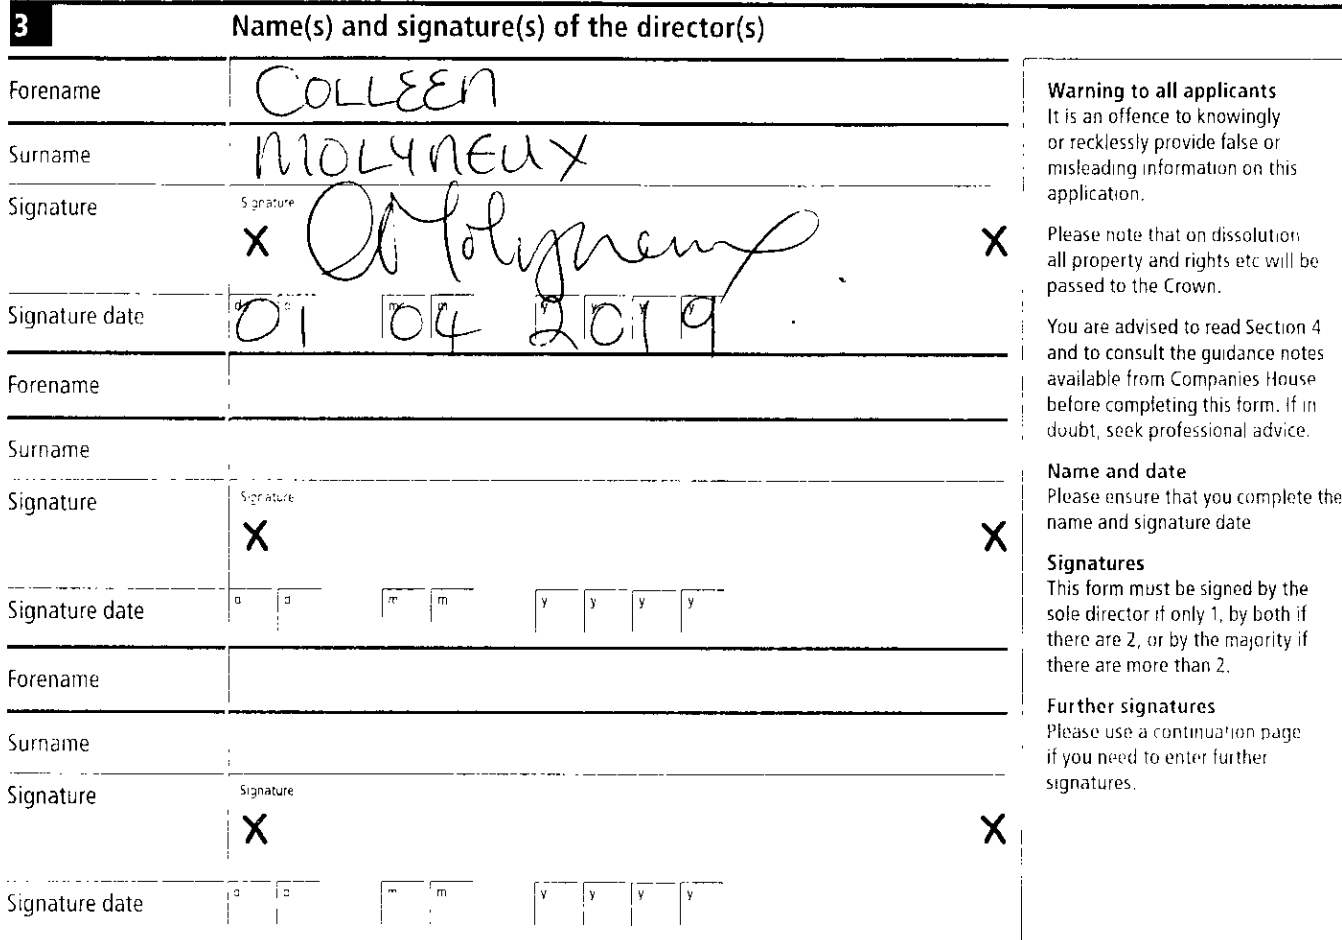 3 Name(s) and signature(s) of the director(s)
Forename COLLEEN
Surname MOLYNEUX
Signature Signature
X CMolyneux X
Signature date d d m m y y y y
01 04 2019
Forename
Surname
Signature Signature
X X
Signature date d d m m y y y y
Forename
Surname
Signature Signature
X X
Signature date d d m m y y y y
Warning to all applicants
It is an offence to knowingly
or recklessly provide false or
misleading information on this
application.
Please note that on dissolution
all property and rights etc will be
passed to the Crown.
You are advised to read Section 4
and to consult the guidance notes
available from Companies House
before completing this form. If in
doubt, seek professional advice.
Name and date
Please ensure that you complete the
name and signature date
Signatures
This form must be signed by the
sole director if only 1, by both if
there are 2, or by the majority if
there are more than 2.
Further signatures
Please use a continuation page
if you need to enter further
signatures.